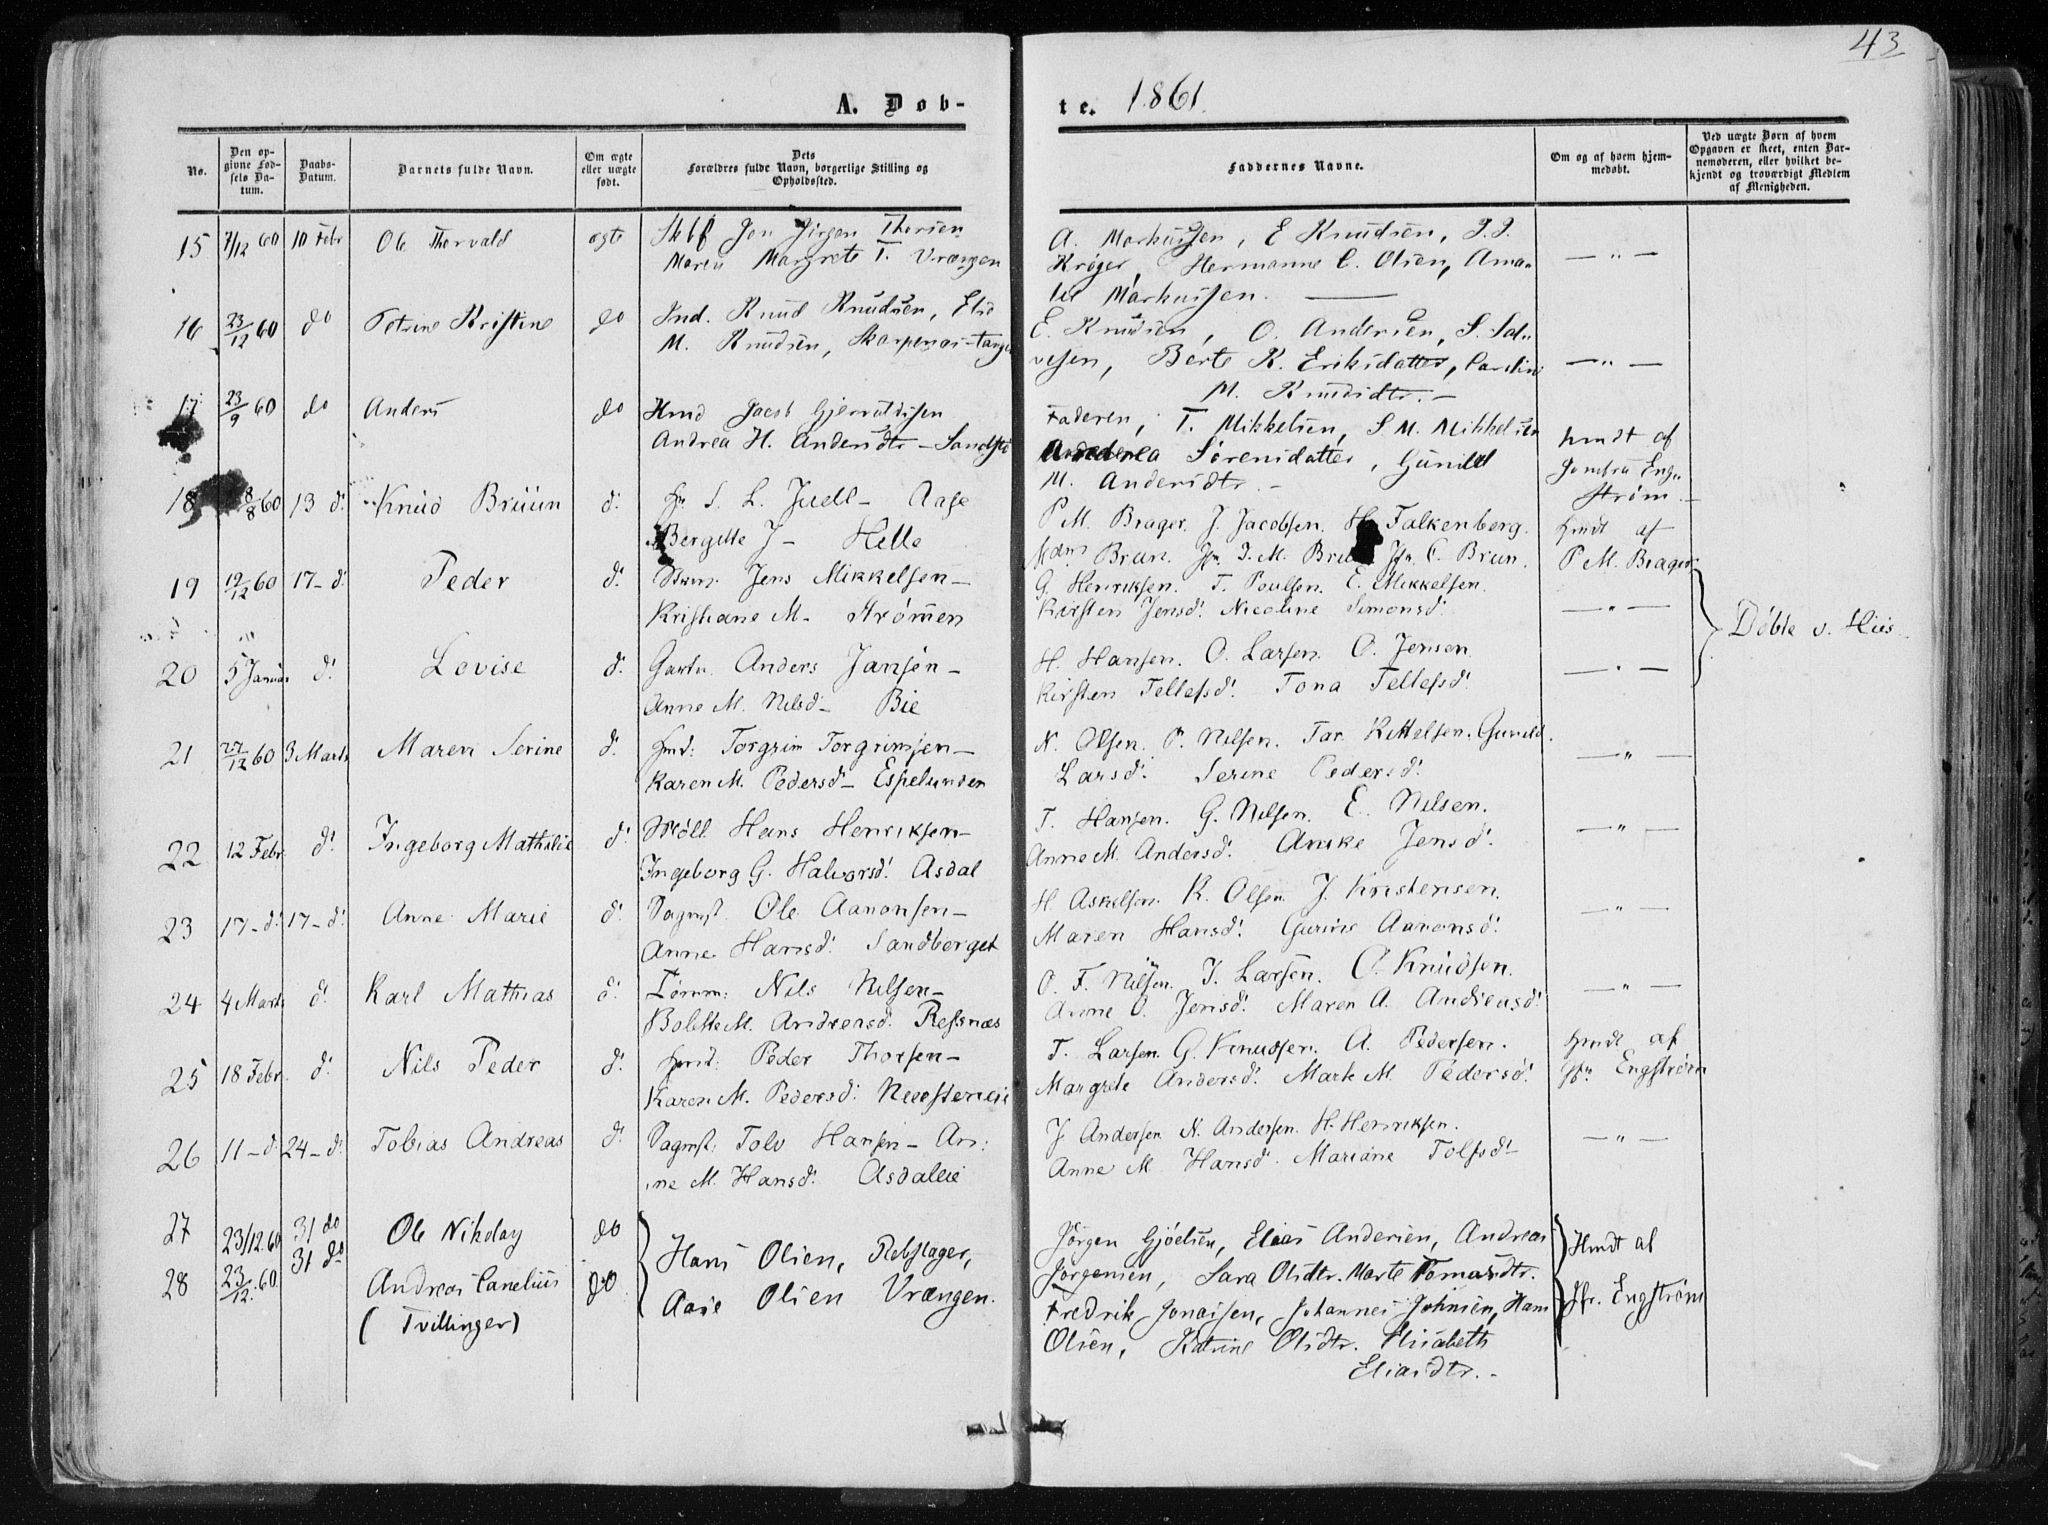 43
A. Døb-
te. 1861.
No.
Den op-
givne Fød-
sels Da-
tum.
Daabs-
Datum.
Barnets fulde Navn.
Om ægte
eller uægte
født.
Dets
Forældres fulde Navn, borgerlige Stilling og
Opholdssted.
Faddernes Navne.
Om og af hvem hjem-
medøbt.
Ved uægte Børn af hvem
Opgaven er skeet, enten Bar-
nemoderen, eller hvilket be-
kjendt og troværdigt Medlem
af Menigheden.
15 7/12 60 10 Febr Ole Thorvald ægte Skbf Jen Jørgen Thorsen
Maren Margrete T. Vrængen
A. Markussen, E Knudsen, J. J.
Krøger, Hermanne C. Olsen, Ama-
lie Markussen. — " —
16 23/12 60 do Petrine Kristine do Ind. Knud Knudsen, Elis
M. Knudsen, Skarpenæs-tangen
E. Knudsen, O. Andersen, S. Sal-
vesen, Berte K. Eriksdatter, Caroline
M. Knudsdtr. — " —
17 23/9 60 do Anders do Hmd Jacob Gjeruldssen
Andrea H. Andersdtr - Sandstø
Faderen, T. Mikkelsen, S. M. Mikkelsen
Andrea Sørensdatter, Gunild
M. Andersdtr. -
hmdt af
Jomfru Eng-
strøm.
18 8/8 60 13 d: Knud Brüün d: Hr S. L. Juell - Aase
Bergitte J - Helle
P M. Brager. J. Jacobsen. H. Falkenberg.
Mdm Brun. Jfr. J. M. Brun Jfr. C. Brun.
hmdt af
P. M. Brager
19 19/12 60 17 - d: Peder d: Strm. Jens Mikkelsen -
Kristiane M - Strømmen
G. Henriksen. T. Poulsen. E. Mikkelsen.
Kirsten Jensd: Nicoline Simonsd:
— " —
Døbte v. Hiis
20 5 Januar d: Lovise d: Gartn. Anders Jansøn -
Anne M. Nilsd - Bie
H. Hansen. O. Larsen. O. Jensen.
Kirsten Tellefsd: Tona Tellefsd:
— " —
21 27/12 60 3 Marts Maren Serine d: Hmd: Torgrim Torgrimsen -
Karen M. Pedersd - Espelunden
N. Olsen. P. Nilsen. Tar. Kittelsen. Gunild
Larsd: Serine Pedersd:
— " —
22 12 Febr d: Ingeborg Mathilie d: Møll Hans Henriksen -
Ingeborg G. Halvorsd: Asdal
T. Hansen. G. Nilsen. E. Nilsen.
Anne M. Andersd: Anike Jensd:
— " —
23 17 - d: 17 - d: Anne Marie d: Dagmst: Ole Aanonsen -
Anne Hansd: Sandberget
H Askelsen. K. Olsen J. Kristensen.
Maren Hansd: Gurine Aanonsd:
— " —
24 4 Marts d: Karl Mathias d: Tømm: Nils Nilsen -
Bolette M. Andreasd: Resnæs
O. F. Nilsen. J. Larsen. O. Knudsen.
Anne O. Jensd: Maren A. Andreasd:
— " —
25 18 Febr. d: Nils Peder d: Hmd: Peder Thorsen -
Karen M. Pedersd:
T. Larsen. G. Knudsen. A. Pedersen.
Margrete Andersd: Marte M. Pedersd:
hmdt af
Jfr. Engstrøm
26 11 - d: 24 - d: Tobias Andreas d: Dagmst: Tolv Hansen - An:
ne M. Hansd: Asdaleie
J Andersen N. Andersen. H. Henriksen.
Anne M. Hansd: Mariane Tolfsd:
— " —
27 23/12.60 31 do Ole Nikolay do
28 23/12 60. 31 do Andreas Canelius do
(Tvillinger)
Hans Olsen, Rebslager,
Aase Olsen Vrængen.
Jørgen Gjøelsen, Elias Andersen, Andreas
Jørgensen, Sara Olsdtr. Marte Tomasdtr.
Fredrik Jonassen, Johannes Johnsen, Hans
Olsen, Katrine Olsdtr. Elisabeth
Eliasdtr. -
Hmdt af
Jfr. Engstrøm